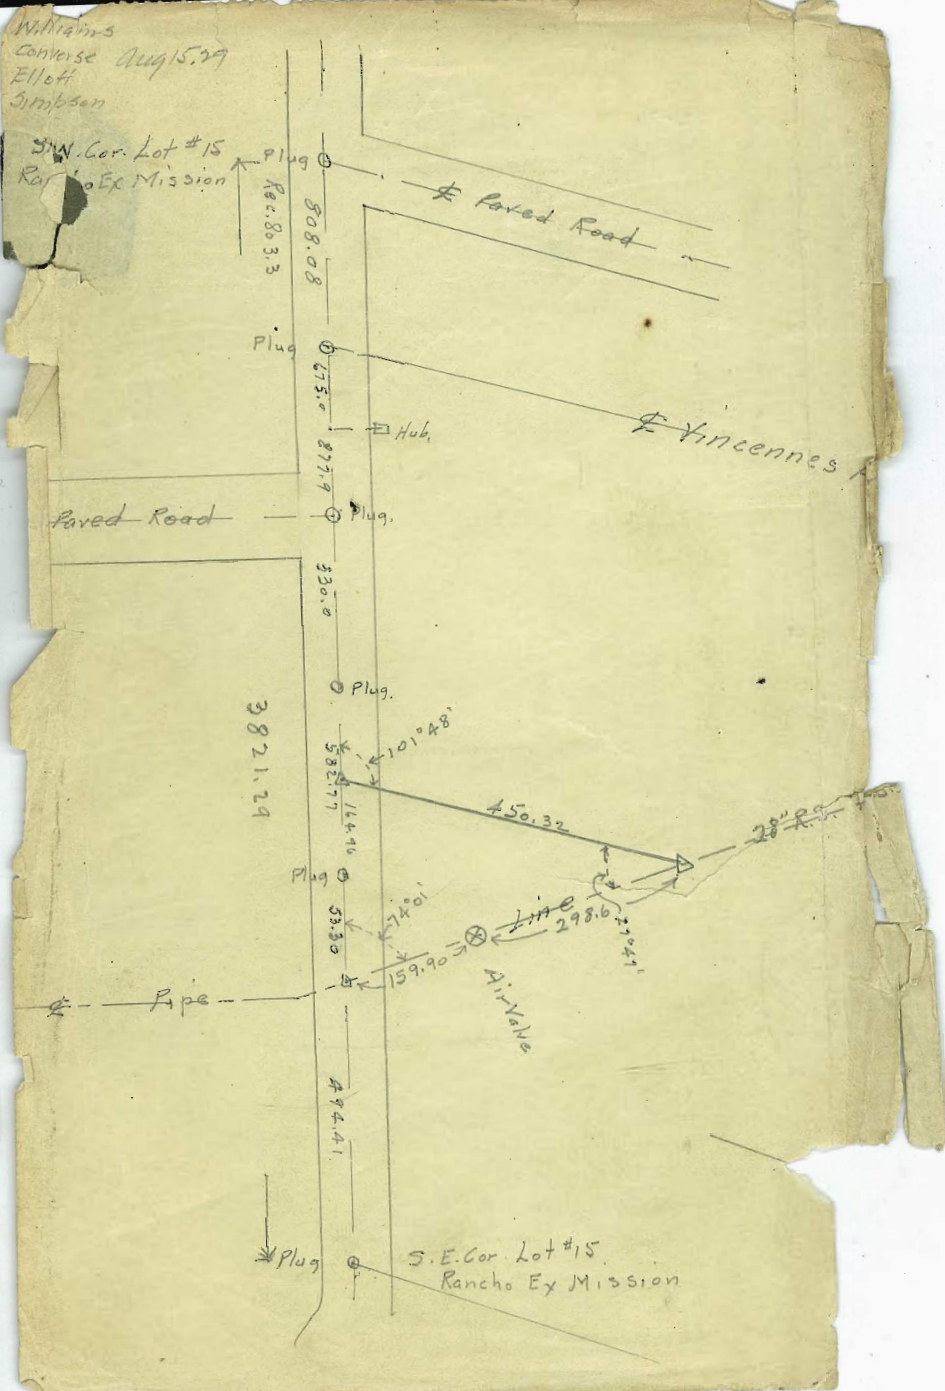 Williams
Converse Aug 15. 29
Ellott
Simpson
S.W. Cor. Lot #15
Rancho Ex Mission
Plug
Rec. 803.3
808.08
℄ Paved Road
Plug
675.0
Hub.
℄ Vincennes
877.9
Paved Road
Plug.
330.0
Plug.
3821.29
101°48'
582.77
164.96
450.32
28"
Plug
53.30
74°01'
Line
298.6
29°49'
159.90
Air Valve
℄ Pipe
494.41
Plug
S.E. Cor. Lot #15
Rancho Ex Mission